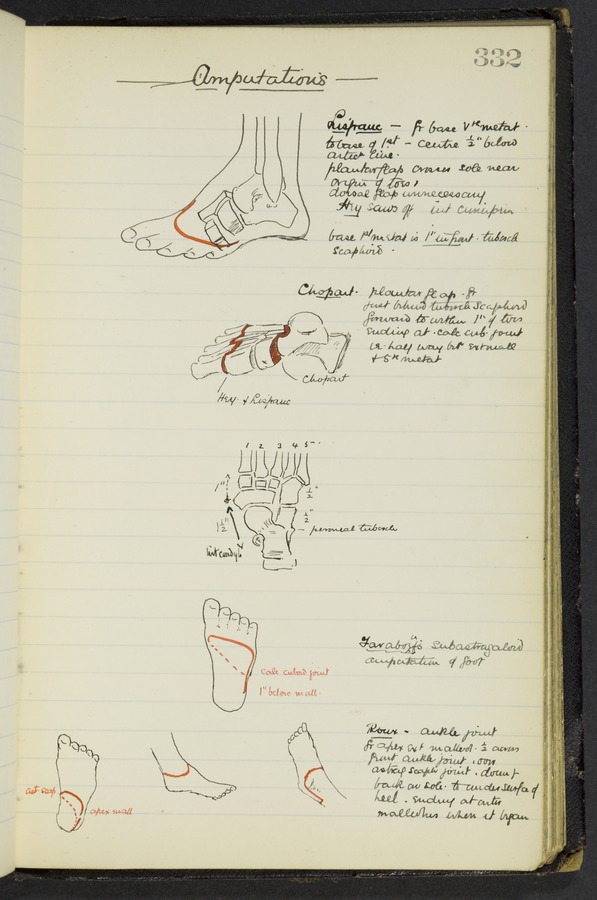 332
Amputations
Lisfranc - fr base Vth metat.
to base of 1st - centre ½" below
artic line.
plantar flap crosses sole near
origin of toes,
dorsal flap unnecessary
Hey saws off int cuneifrm
base 1st metat is 1" in front tubercle
Scaphoid.
Chopart. plantar flap fr
just behind tubercle Scaphoid
forward to within 1" of toes
Ending at calc cub joint
ie half way bet ext mall
+ 5th metat
Chopart
Hey + Lisfranc
1 2 3 4 5
1"
½"
½"
1½"
peroneal tubercle
Farabeuf's Subastragaloid
amputation of foot
calc cuboid joint
1" below mall.
Roux - ankle joint
fr apex ext malleol. ½ across
front ankle joint. over
astrag scaph joint. down
back on sole. to under surface of
heel. Ending at
malleolus when it began
ast scap
apex mall